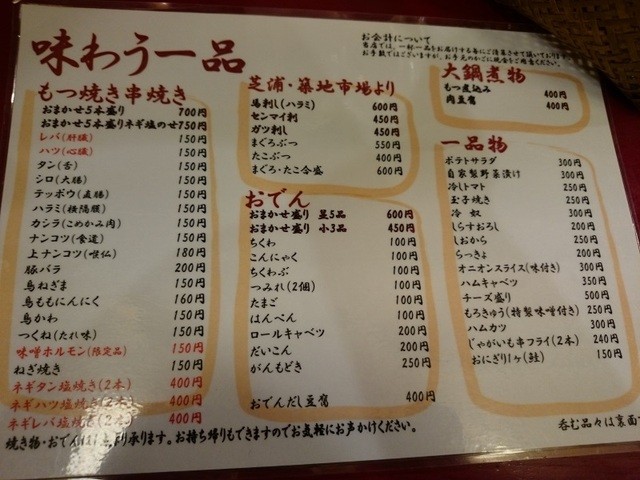 味わう一品
お会計について
当店では、一杯一品をお届けする毎にご清算させて頂いております
お手数ではございますが、お手元のかごに現金をご用意ください。
もつ焼き串焼き
おまかせ5本盛り 700円
おまかせ5本盛りネギ塩のせ 750円
レバ(肝臓) 150円
ハツ(心臓) 150円
タン(舌) 150円
シロ(大腸) 150円
テッポウ(直腸) 150円
ハラミ(横隔膜) 150円
カシラ(こめかみ肉) 150円
ナンコツ(食道) 150円
上ナンコツ(喉仏) 180円
豚バラ 200円
鳥ねぎま 150円
鳥ももにんにく 160円
鳥かわ 150円
つくね(たれ味) 150円
味噌ホルモン(限定品) 150円
ねぎ焼き 150円
ネギタン塩焼き(2本) 400円
ネギハツ塩焼き(2本) 400円
ネギレバ塩焼き(2本) 400円
芝浦・築地市場より
馬刺し(ハラミ) 600円
センマイ刺 450円
ガツ刺し 450円
まぐろぶつ 550円
たこぶつ 400円
まぐろ・たこ合盛 600円
おでん
おまかせ盛り 呈5品 600円
おまかせ盛り 小3品 450円
ちくわ 100円
こんにゃく 100円
ちくわぶ 100円
つみれ(2個) 100円
たまご 100円
はんぺん 100円
ロールキャベツ 200円
だいこん 200円
がんもどき 250円
おでんだし豆腐 400円
大鍋煮物
もつ煮込み 400円
肉豆腐 400円
一品物
ポテトサラダ 300円
自家製野菜漬け 300円
冷しトマト 250円
玉子焼き 250円
冷奴 300円
しらすおろし 250円
しおから 250円
らっきょ 200円
オニオンスライス(味付き) 300円
ハムキャベツ 350円
チーズ盛り 500円
もろきゅう(特製味噌付き) 250円
ハムカツ 300円
じゃがいも串フライ(2本) 240円
おにぎり1ヶ(鮭) 150円
焼き物・おでんは り承ります。お持ち帰りもできますのでお気軽にお声かけください。
呑む品々は裏面